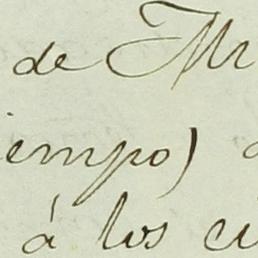 de Mr
iempo)
á los ci